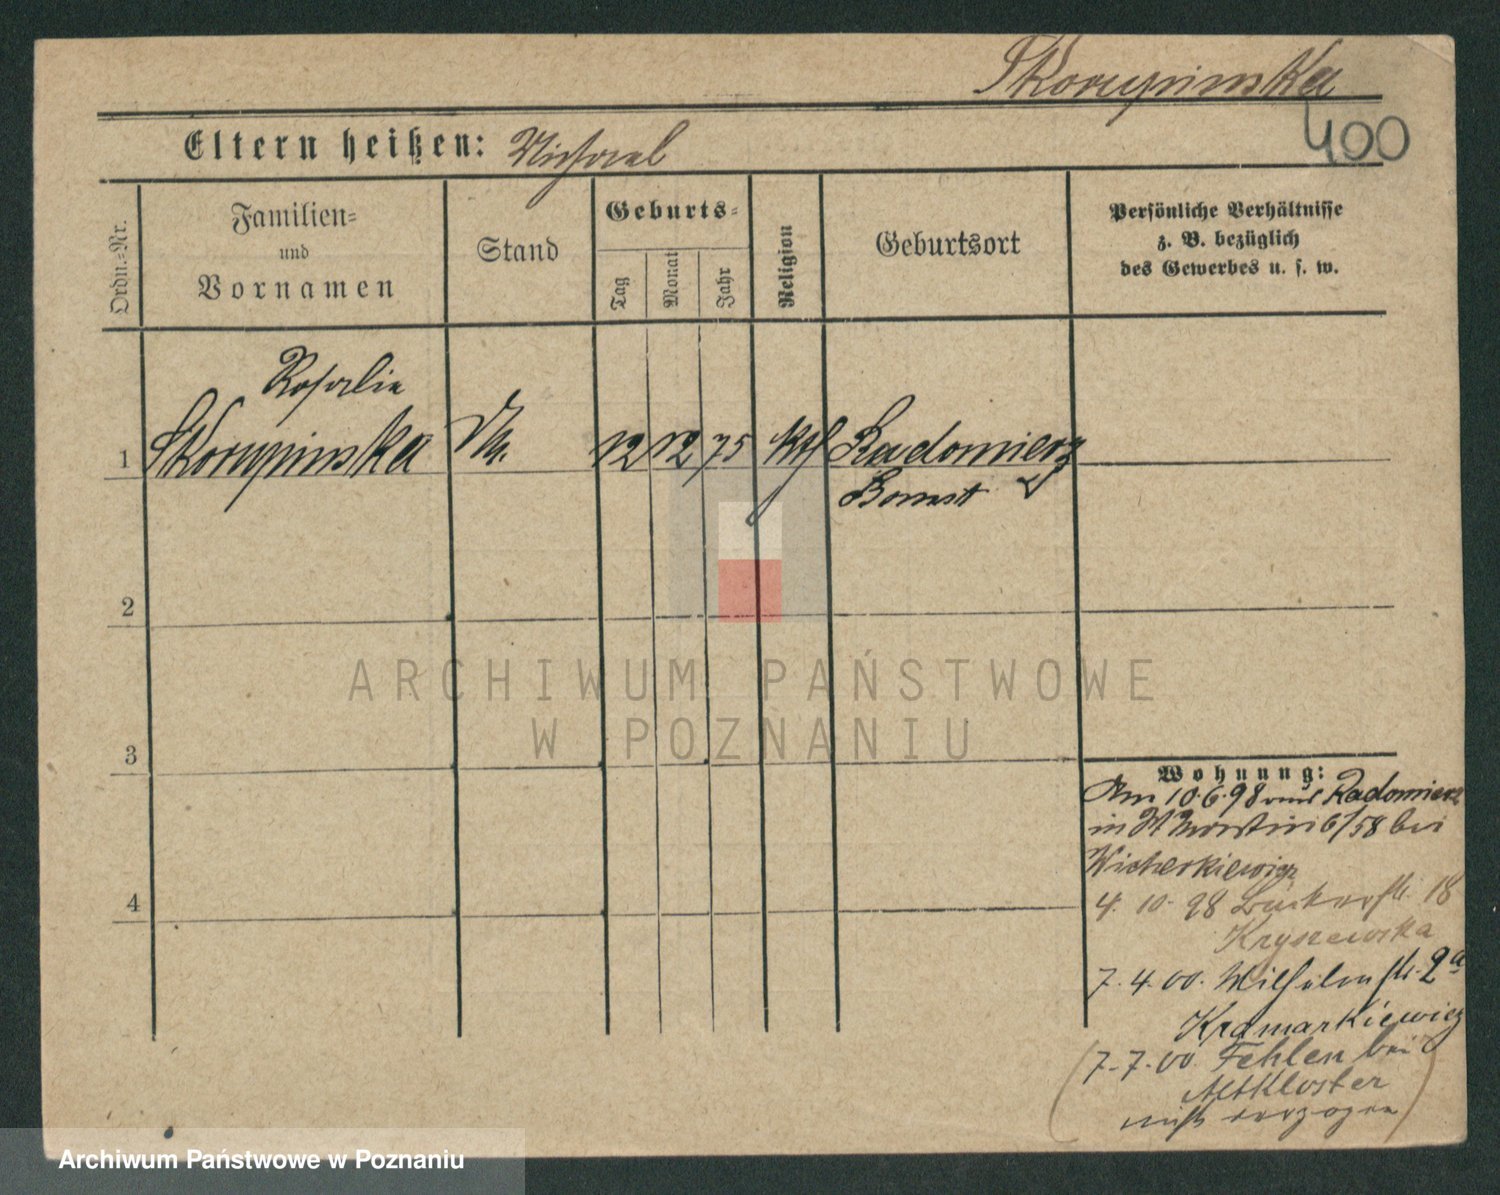 Skorupinska
400
Eltern heißen: Michael
Ordn.-Nr.
Familien-
und
Vornamen
Stand
Geburts-
Tag
Monat
Jahr
Religion
Geburtsort
Persönliche Verhältnisse
z. B. bezüglich
des Gewerbes u. s. w.
Rosalie
1 Skorupinska 12 12 75 kth Radomierz
Bomst
2
3
4
Wohnung:
Am 10.6.98 aus Radomierz
in St Martin 6/58 bei
Wicherkiewicz
4. 10. 98 Bäckerstr. 18
Kryszewska
7. 4. 00. Wilhelmstr. 2a
Kramarkiewicz
7. 7. 00 Fehlen bei
Altkloster
nicht verzogen
ARCHIWUM PAŃSTWOWE
W POZNANIU
Archiwum Państwowe w Poznaniu